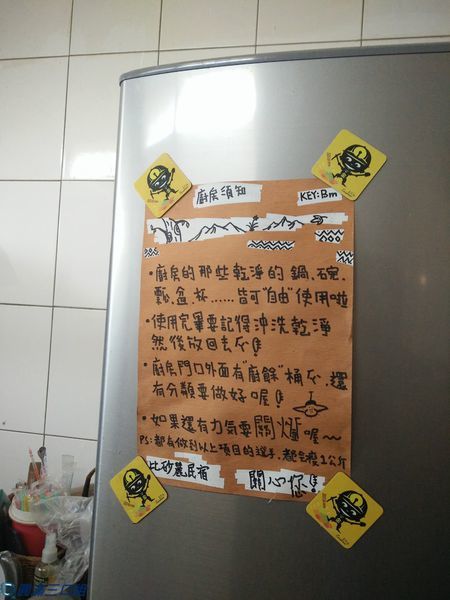 廚房須知
KEY:Bm
•廚房的那些乾淨的鍋、碗、
瓢、盆、杯……皆可"自由"使用啦
•使用完畢要記得沖洗乾淨
然後放回去ㄍ!
•廚房門口外面有"廚餘"桶ㄍ,還
有分類要做好喔!
•如果還有力氣要關燈喔~~
PS:都有做到以上項目的選手,都會瘦1公斤
比砂麗民宿
關心您!